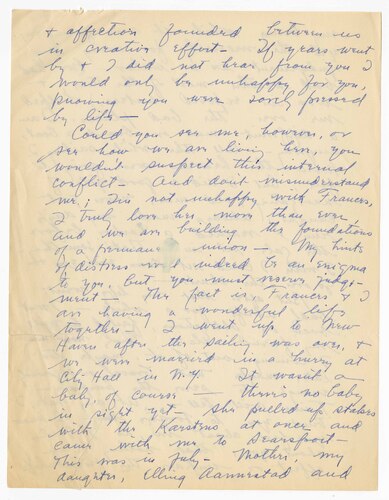 & affection founded between us
in creative effort — If years went
by & I did not hear from you I
would only be unhappy for you,
knowing you were sorely pressed
by life —
Could you see me, however, or
see how we are living here, you
wouldn't suspect this internal
conflict — And don't misunderstand
me; I'm not unhappy with Frances,
I truly love her more than ever
and we are building the foundations
of a permane union — My hints
of distress w l indeed be an enigma
to you, but you must reserve judge-
ment — The fact is, Frances & I
are having a wonderful life
together — I went up to New
Haven after the sailing was over, &
we were married in a hurry at
City Hall in N.Y. It wasn't a
baby, of course — there's no baby
in sight yet — She pulled up stakes
with the Karstens at once and
came with me to Searsport —
This was in July — Mother, my
daughter, Elling Aannestad and